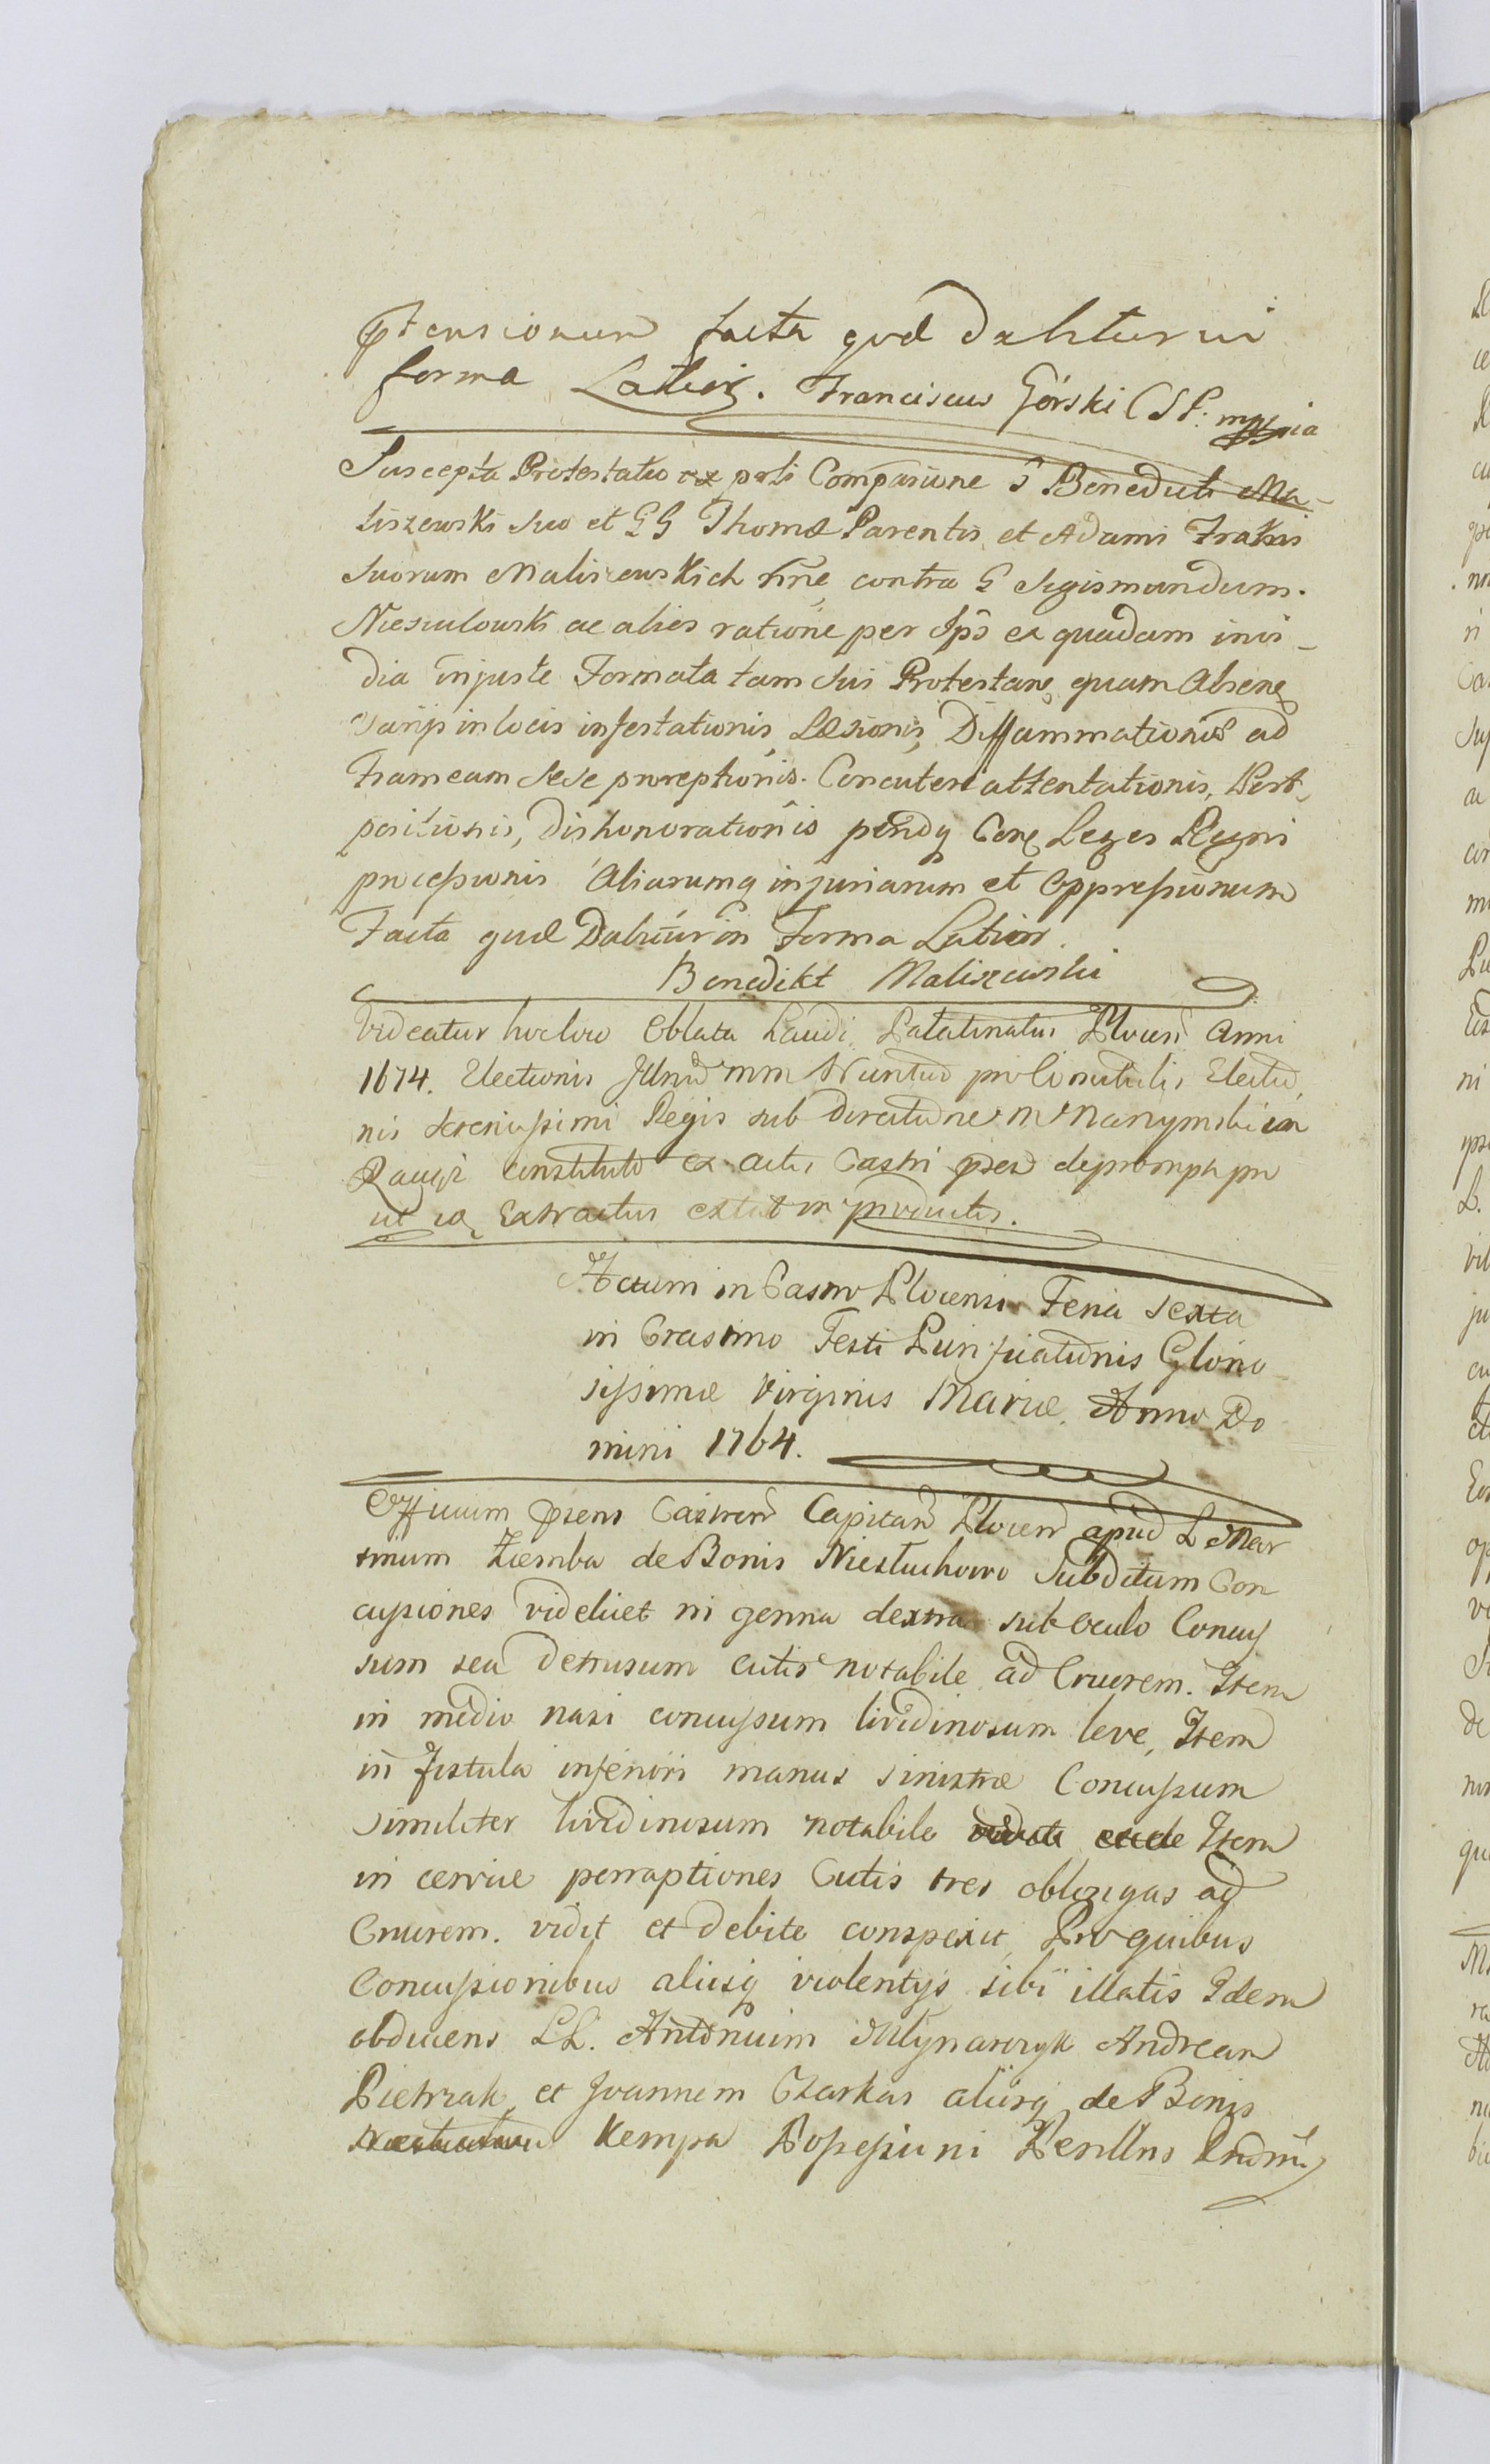 ptensionum facta qvd dabitur in
forma Latiori. Franciscus Górski CSP: mppria
Suscepta Protestatio ex psli Comparitione G Benedicti Ma-
liszewski Suo et GG Thomæ Parentis et Adami Fratris
Suorum Maliszewskich nne contra G Sigismundum.
Niesiulowski ac alios ratione per Ips ex quadam invi-
dia injuste Formata tam Sui Protestan quam Absen
Varijs in locis infestationis, Læsionis, Diffammationis ad
Frameam Sese proreptionis. Concuteri attentationis, Post-
positionis, dishonorationis Con Leges Regni
processionis Aliarumq injuriarum et Oppressionum
Facta qvd Dabitur in Forma Latiori.
Benedikt Maliszewski
Videatur hocloco Oblata Laudi Palatinatus Plocen Anni
1674. Electionis mm Nuntior pro Electio
nis Serenissimi Regis sub directione M in
Raciąż constituto ex actis Castri psen deprompt pro
ut Extractus extat in productis.
Actum in Castro Plocensi Feria sexta
in Crastino Festi Purificationis Glorio
sissimæ Virginis Mariæ. Anno Do
mini 1764.
Officium psens Castren Capitan Plocen apud L Mar
tinum Ziemba de Bonis Niestuchowo Subditum Con
cussiones videlicet in genna dextra sub oculo Concus
sum seu detrusum cutis notabile ad Cruorem. Item
in medio nasi concussum lividinosum leve, Item
in fistula inferiori manus sinistræ Concussum
similiter lividinosum notabile Item
in cervice perraptiones Cutis tres oblongas ad
Cruorem. vidit et debite conspexit, Pro quibus
Concussionibus aliisq violentijs sibi illatis Idem
obducens LL. Antonium Mlynarczyk Andream
Pietrzak, et Joannem Czarkas aliisq de Bonis
Kempa Possessioni Perillris